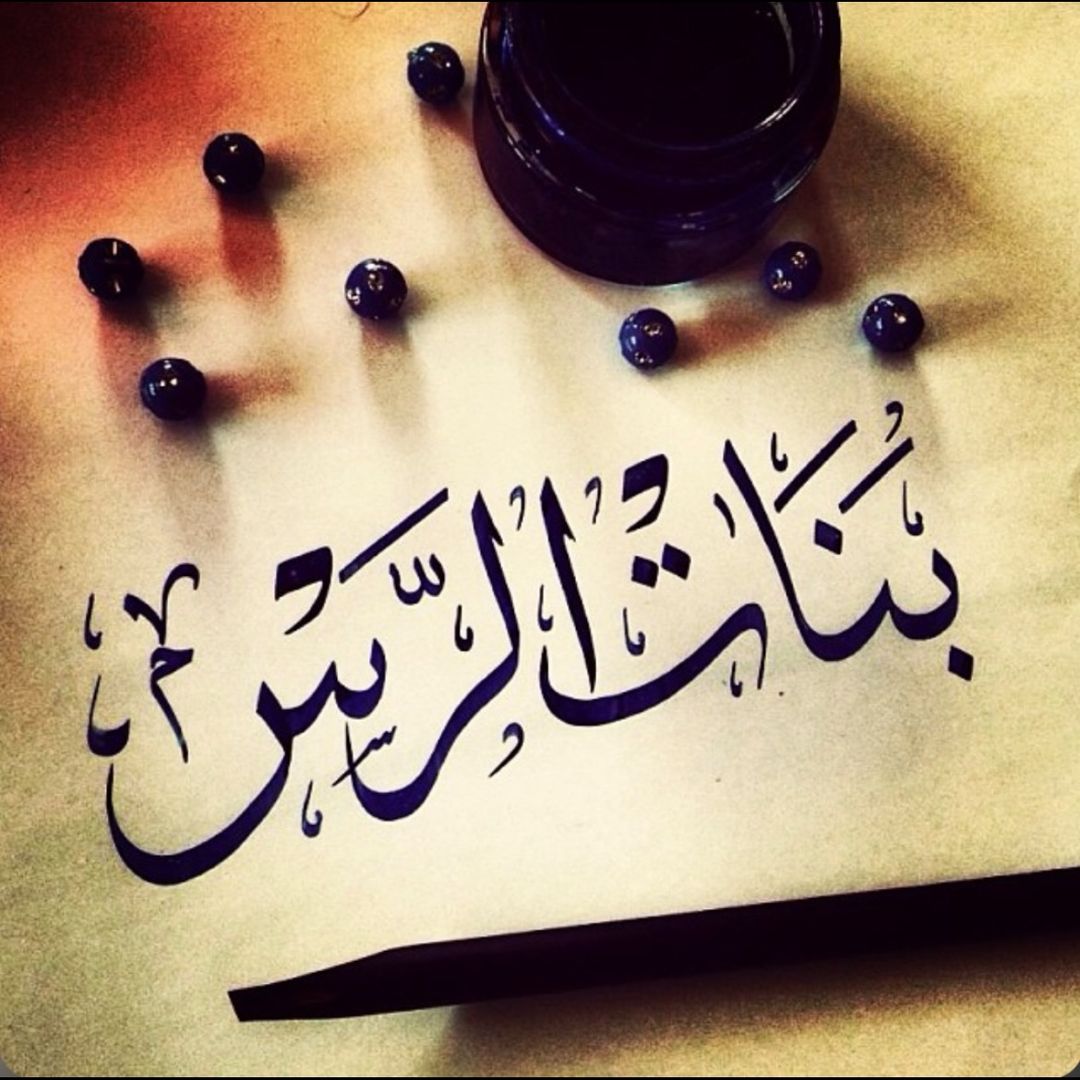 بَنَات الرَّس